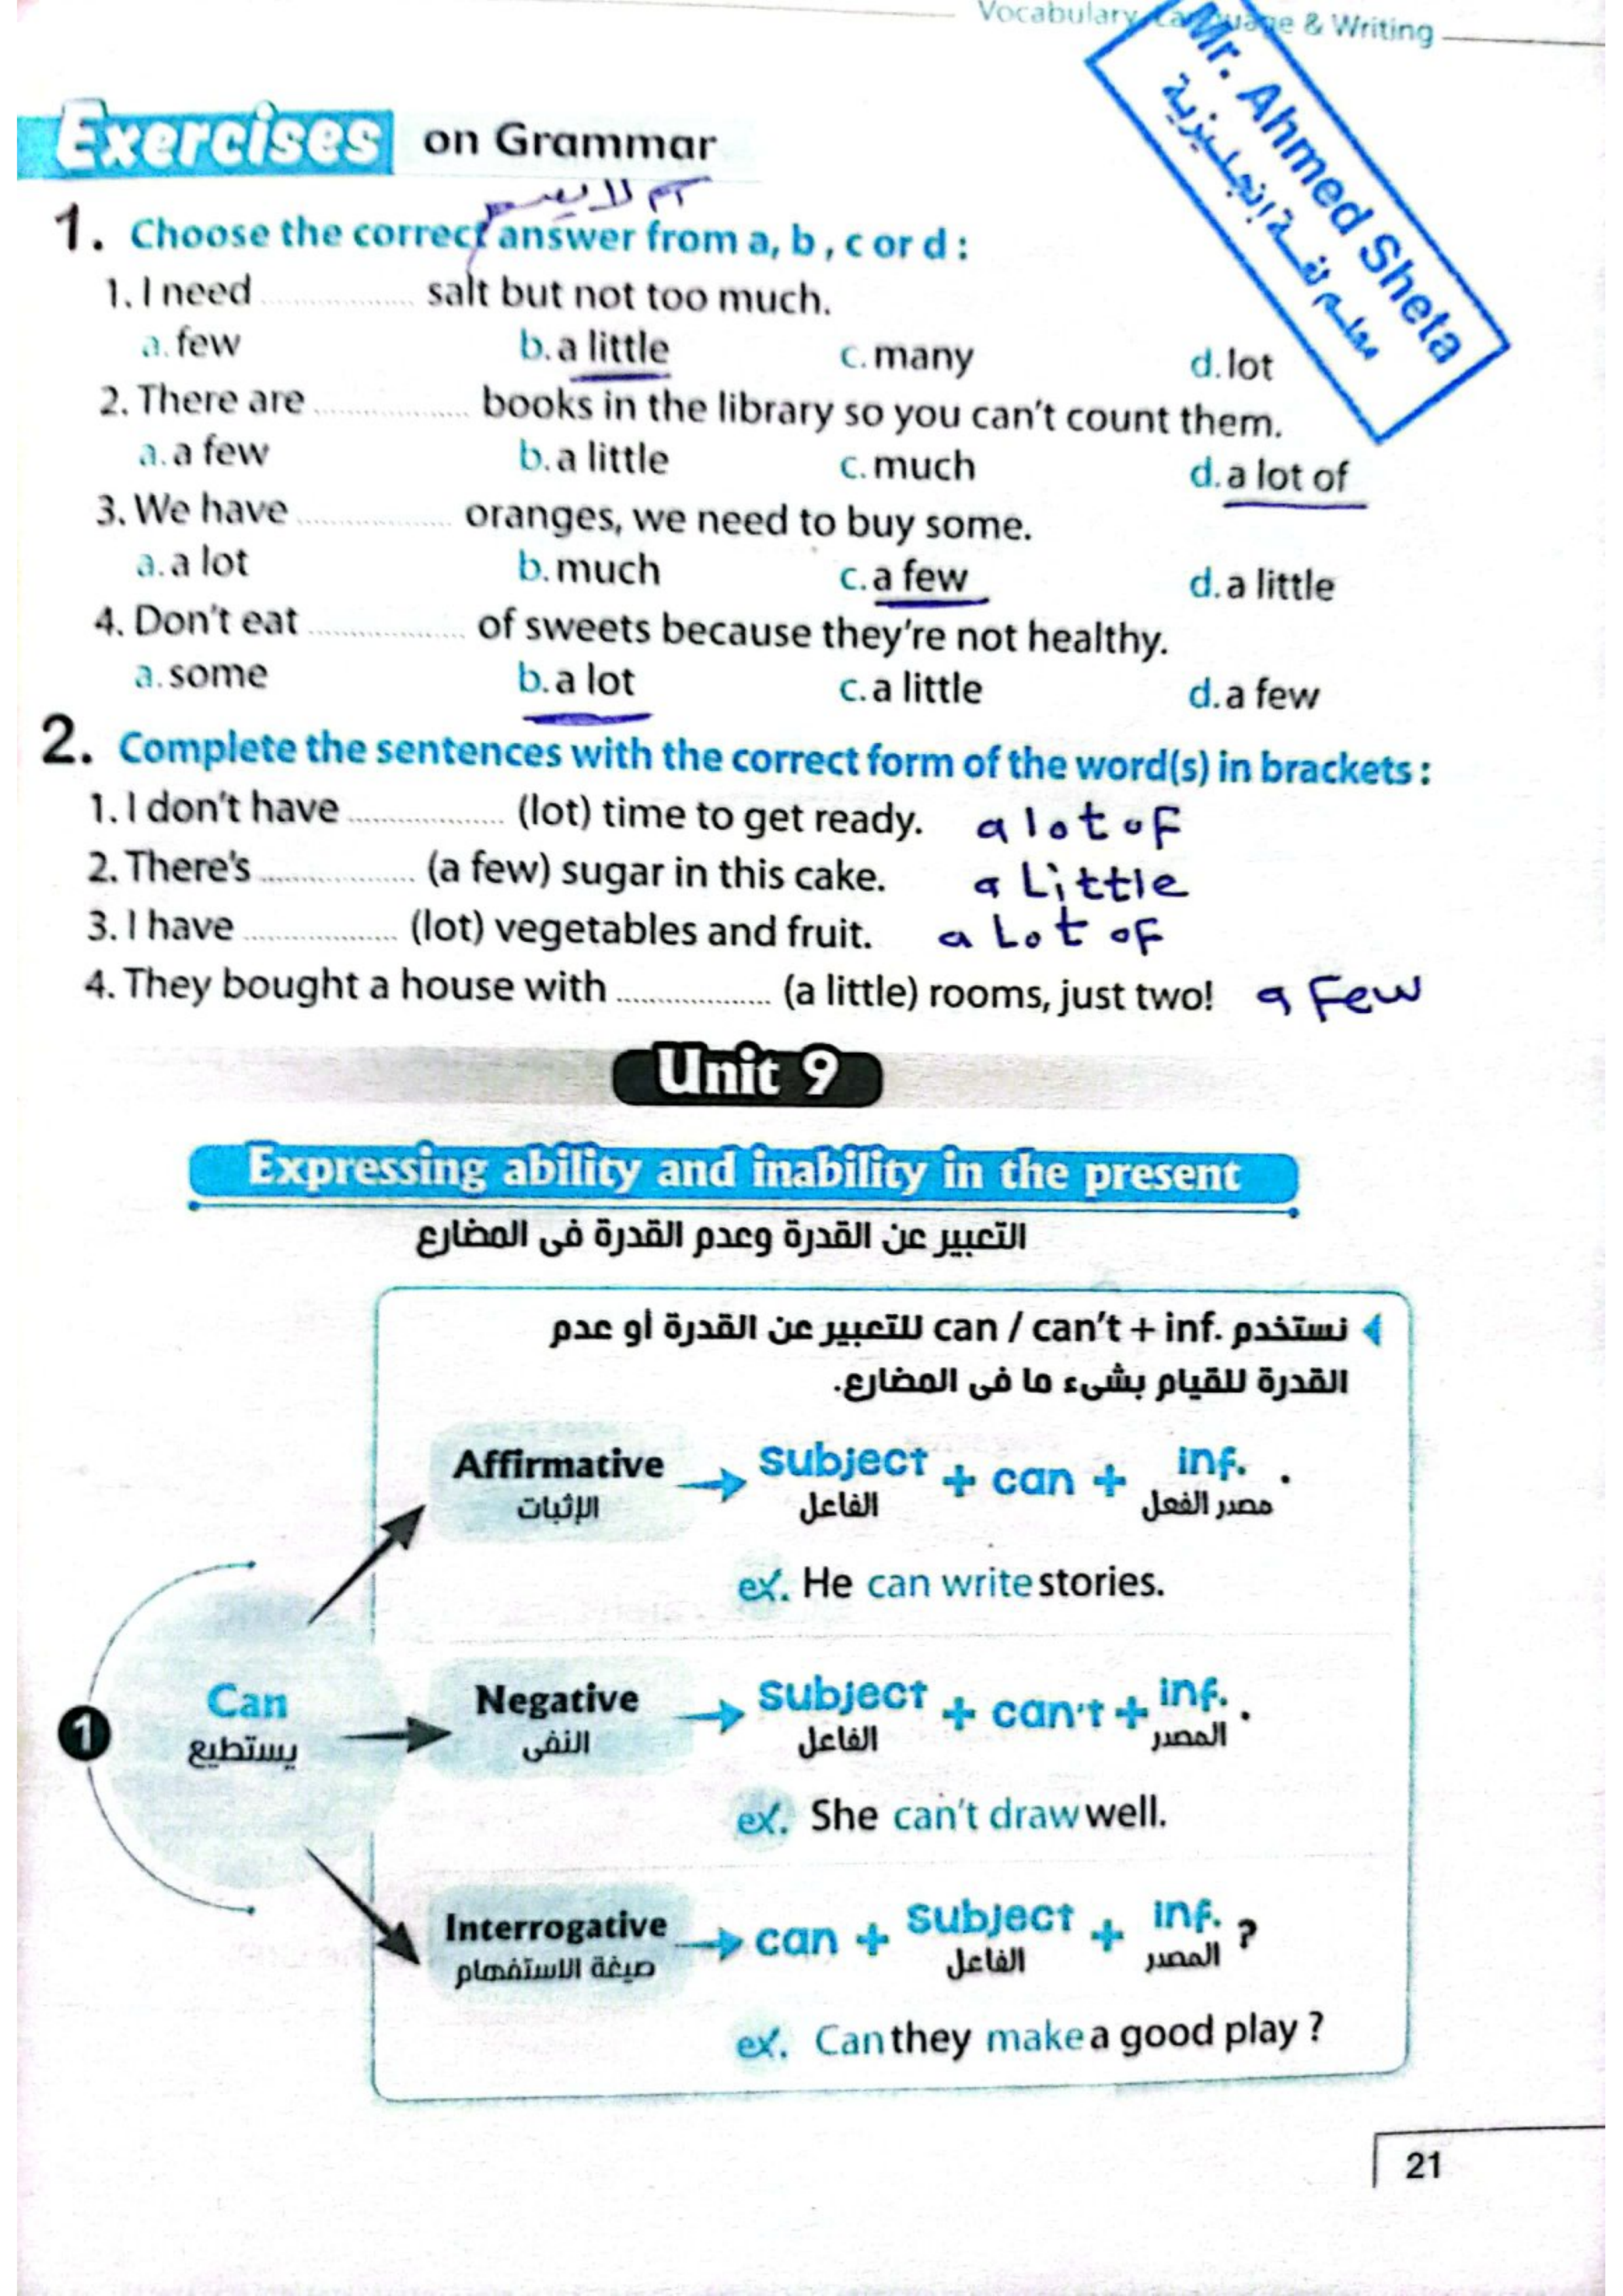 Vocabulary, Language & Writing
Mr. Ahmed Sheta
معلم لغة إنجليزية
Exercises on Grammar
اسم لا يعد
1. Choose the correct answer from a, b, c or d :
1. I need ................ salt but not too much.
a. few b. a little c. many d. lot
2. There are ................ books in the library so you can't count them.
a. a few b. a little c. much d. a lot of
3. We have ................ oranges, we need to buy some.
a. a lot b. much c. a few d. a little
4. Don't eat ................ of sweets because they're not healthy.
a. some b. a lot c. a little d. a few
2. Complete the sentences with the correct form of the word(s) in brackets :
1. I don't have ................ (lot) time to get ready. a lot of
2. There's ................ (a few) sugar in this cake. a Little
3. I have ................ (lot) vegetables and fruit. a Lot of
4. They bought a house with ................ (a little) rooms, just two! a Few
Unit 9
Expressing ability and inability in the present
التعبير عن القدرة وعدم القدرة فى المضارع
نستخدم can / can't + inf. للتعبير عن القدرة أو عدم
القدرة للقيام بشىء ما فى المضارع.
Affirmative → subject + can + inf. .
الإثبات الفاعل مصدر الفعل
ex. He can write stories.
1 Can
يستطيع
Negative → subject + can't + inf. .
النفى الفاعل المصدر
ex. She can't draw well.
Interrogative → can + subject + inf. ?
صيغة الاستفهام الفاعل المصدر
ex. Can they make a good play ?
21